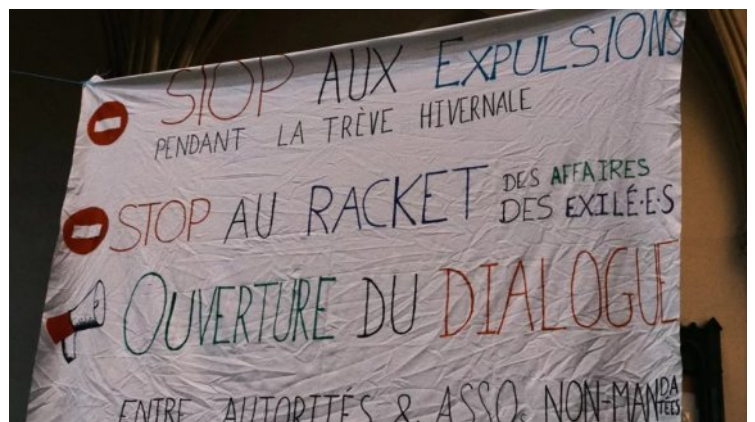 STOP AUX EXPULSIONS
PENDANT LA TRÈVE HIVERNALE
STOP AU RACKET DES AFFAIRES
DES EXILÉ·E·S
OUVERTURE DU DIALOGUE
ENTRE AUTORITÉS & ASSO. NON-MANDATÉES